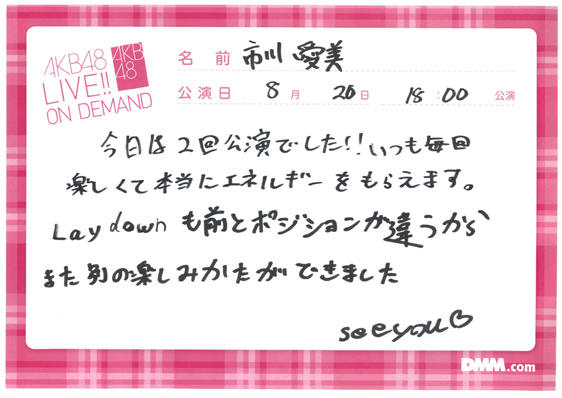 AKB48
LIVE!!
ON DEMAND
AKB
48
名前 市川 愛美
公演日 8月 26日 18:00 公演
今日は2回公演でした!! いつも毎回
楽しくて本当にエネルギーをもらえます。
Lay down も前とポジションが違うから
また別の楽しみかたができました
see you♡
DMM.com